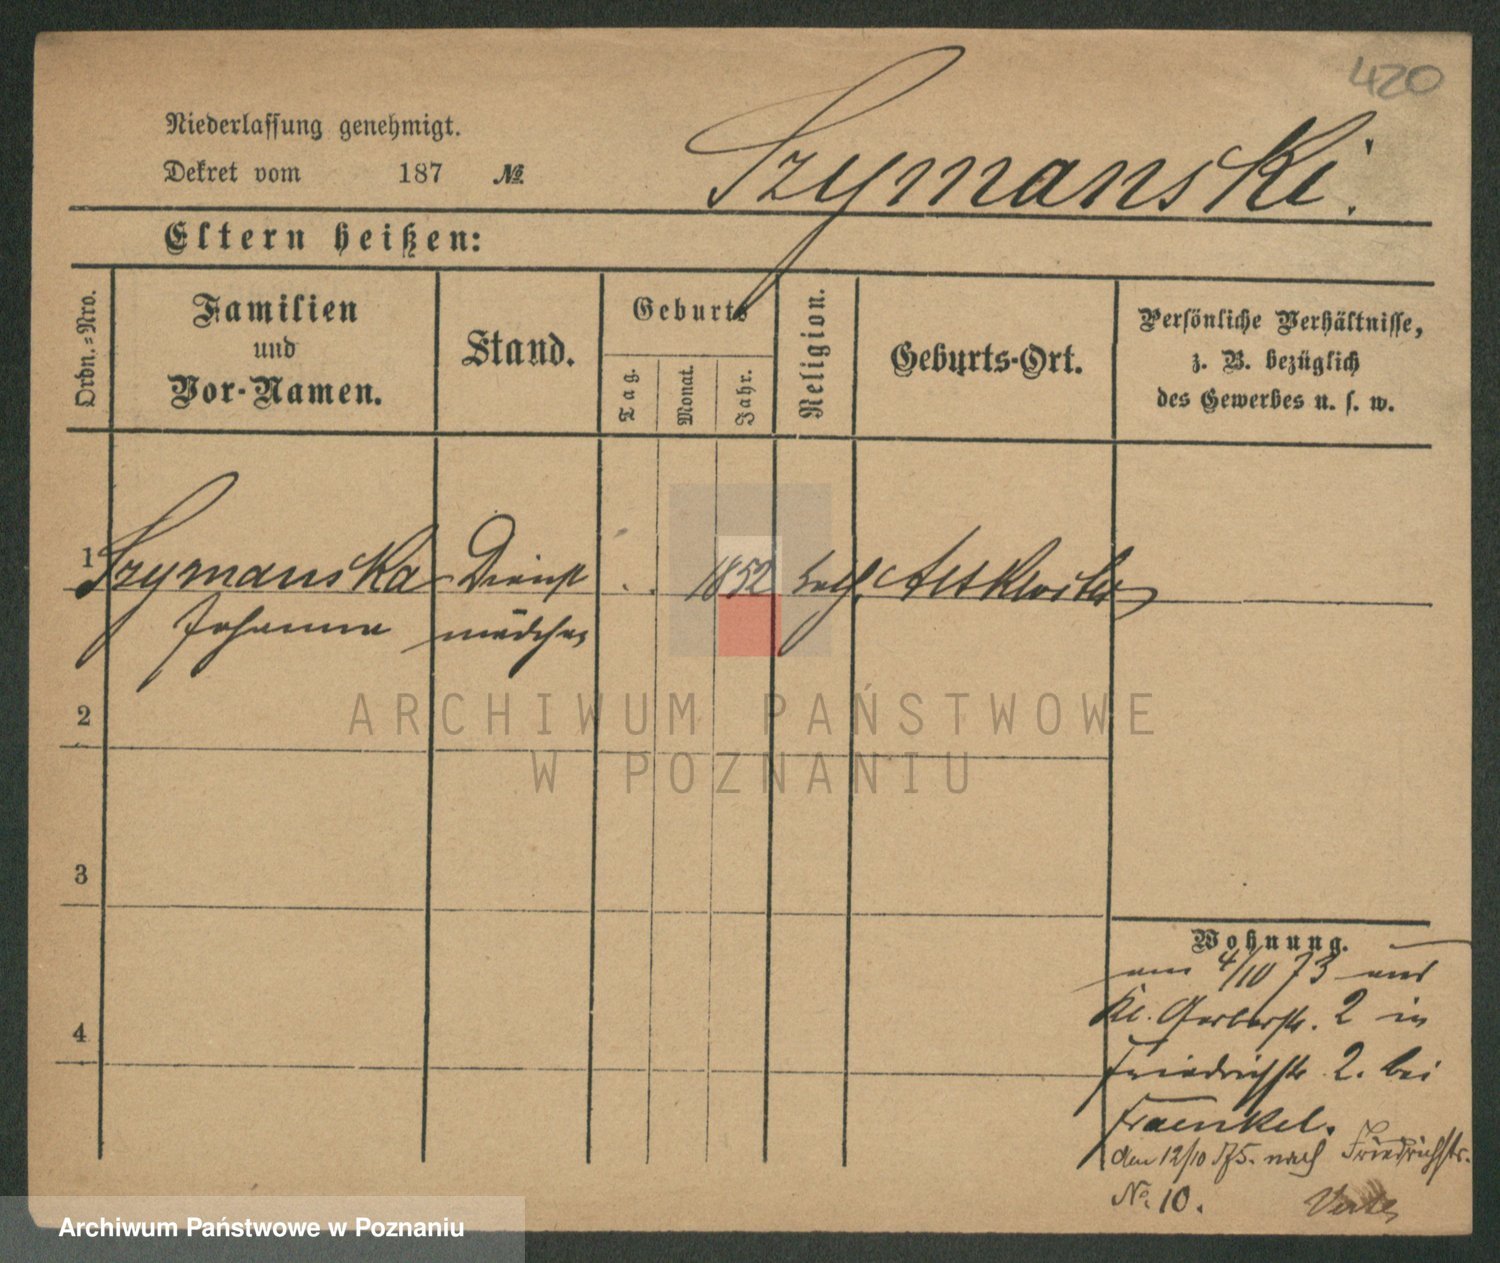 420
Niederlassung genehmigt.
Dekret vom 187 №
Szymanski.
Eltern heißen:
Ordn.=Nro.
Familien
und
Vor-Namen.
Stand.
Geburts
Tag.
Monat.
Jahr.
Religion.
Geburts-Ort.
Persönliche Verhältnisse,
z. B. bezüglich
des Gewerbes u. s. w.
1 Szymanska Dienst 1852 kath. Altkloster
Johanna mädchen
2
3
4
ARCHIWUM PAŃSTWOWE
W POZNANIU
Wohnung.
am 4/10 73 aus
Kl. Gerberstr. 2 in
Friedrichstr 2. bei
Fraenkel.
den 12/10 75. nach Friedrichstr.
No. 10.
Archiwum Państwowe w Poznaniu